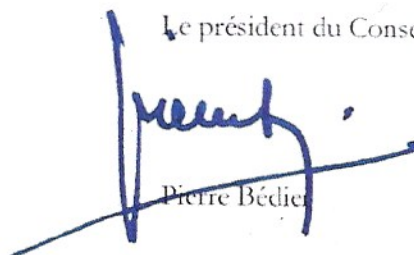 Le président du Conse
Pierre Bédier